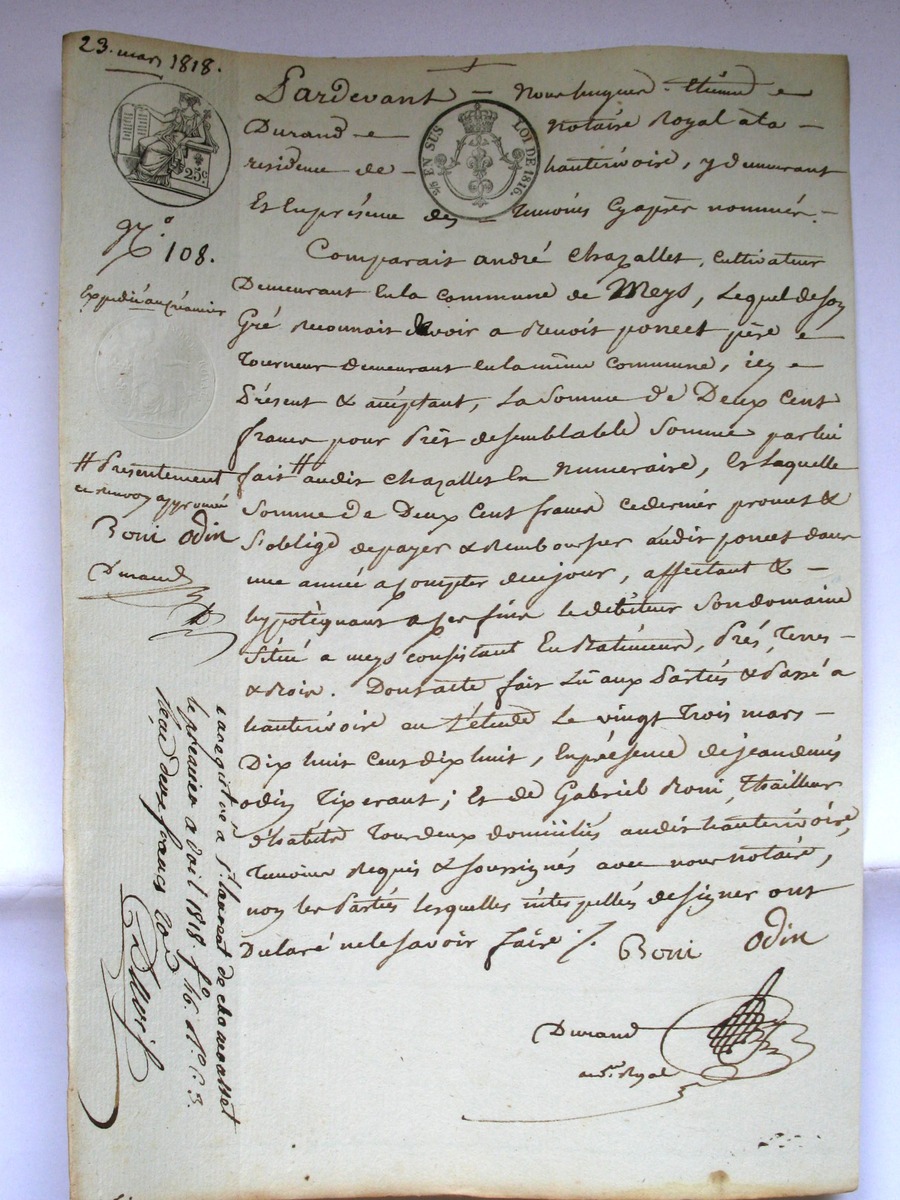 23. mars 1818.
25c
5/8 EN SUS LOI DE 1816.
Pardevant — nous hugues Etienne
Durand — notaire Royal a la —
residence de — hauterivoire, y demeurant
Et En présence des — Temoins Cyaprès nommés. —
N.o 108.
Comparait andré Chazallet, Cultivateur
Expedié au Créancier
Demeurant En la commune de Meys, Lequel de son
Gré Reconnait devoir a Benoit poncet père
Tourneur demeurant en la même commune, icy
Présent & acceptant, La Somme de Deux Cent
francs pour Prêt de semblable Somme par lui
fait # audit Chazallet En Numeraire, Et Laquelle
# Présentement
ce renvoy approuvé
Boni Odin
Durand
Somme de Deux Cent francs ce dernier promet &
S'oblige de payer & Rembourser audit poncet dans
une année a Compter de ce jour, affectant & —
hypotèquant a ces fins le débiteur Son domaine
Situé a meys consistant En Batiments, Prés, Terres —
& Bois. Dont acte fait Lû aux Parties & Passé a
hauterivoire en L'étude Le vingt Trois mars —
Dix huit Cent dix huit, En présence de jean denis
odin Tixerant; Et de Gabriel Boni, Thailleur
d'habits Tous deux domiciliés audit hauterivoire,
Temoins Requis & soussignés avec nous notaire,
non les Parties lesquelles interpellées de signer ont
Declaré ne le savoir faire ./.
Boni Odin
Durand
no.re Royal
Enregistré a St. laurent de chamousset
le premier avril 1818 fo. 46. Ro. C. 3.
Reçu deux francs 20 c.